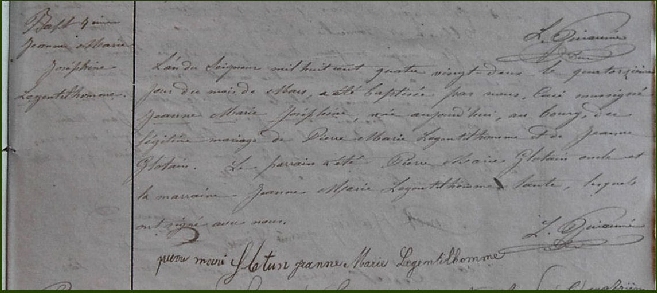 Bapt 4
Jeanne Marie
Joséphine
Legentilhomme.
L'an du Seigneur mil huit cent quatre vingt-deux le quatorzième
jour du mois de Mars, a été baptisée par nous, Curé soussigné
Jeanne Marie Joséphine, née aujourd'hui, au bourg, du
légitime mariage de Pierre Marie Legentilhomme & de Jeanne
Glotain. Le parrain a été Pierre Marie Glotain oncle et
la marraine Jeanne Marie Legentilhomme tante, lesquels
ont signé avec nous.
pierre marie Jeanne Marie Legentilhomme